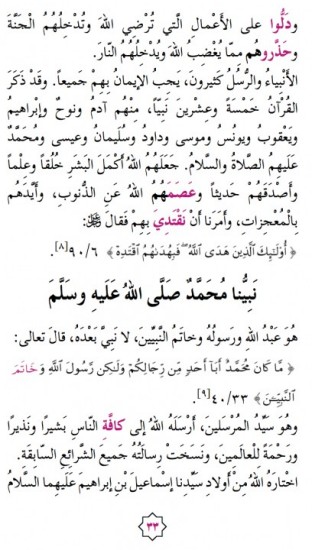 ودَلُّوا على الأَعْمالِ الَّتي تُرْضي اللهَ وَتُدْخِلُهُمُ الْجَنَّةَ
وحَذَّروهُم ممّا يُغْضِبُ اللهَ ويُدْخِلُهُم النّارَ.
الأَنْبياءُ والرُّسُلُ كَثيرونَ، يَجِبُ الإِيمانُ بِهِم جَميعاً. وقَدْ ذَكَرَ
القُرْآنُ خَمْسَةً وعِشْرينَ نَبِيّاً، مِنْهُم آدمُ ونوحٌ وإبراهيمُ
ويَعْقوبُ ويونُسُ وموسى وداودُ وسُلَيمانُ وعيسى ومُحمَّدٌ
عَلَيهِمُ الصَّلاةُ والسَّلامُ. جَعَلَهُمُ اللهُ أَكْمَلَ البَشَرِ خُلُقاً وعِلْماً
وأَصْدَقَهُمْ حَديثاً وعَصَمَهُمُ اللهُ عَنِ الذُّنوبِ، وأَيَّدَهُم
بِالْمُعْجِزاتِ، وأَمَرَنا أَنْ نَقْتَدِيَ بِهِمْ فَقالَ ﷻ:
﴿ أُوْلَـٰٓئِكَ ٱلَّذِينَ هَدَى ٱللَّهُ ۖ فَبِهُدَىٰهُمُ ٱقْتَدِهْ ﴾ ٩٠/٦[٨].
نَبِيُّنا مُحَمَّدٌ صَلَّى اللهُ عَلَيهِ وسَلَّمَ
هُوَ عَبْدُ اللهِ وَرَسُولُهُ وخاتَمُ النَّبِيّينَ، لا نَبِيَّ بَعْدَهُ، قالَ تعالى:
﴿ مَّا كَانَ مُحَمَّدٌ أَبَآ أَحَدٍ مِّن رِّجَالِكُمْ وَلَـٰكِن رَّسُولَ ٱللَّهِ وَخَاتَمَ
ٱلنَّبِيِّـۧنَ ﴾ ٤٠/٣٣[٩].
وهُوَ سَيِّدُ المرْسَلينَ، أَرْسَلَهُ اللهُ إلى كافَّةِ النّاسِ بَشيرًا ونَذيرًا
ورَحْمَةً للْعالَمينَ، ونَسَخَتْ رِسالَتُهُ جَميعَ الشَّرائِعِ السّابِقَةِ.
اخْتارَهُ اللهُ مِنْ أَولادِ سَيِّدِنا إسْماعيلَ بْنِ إبراهيمَ عليهما السَّلامُ
٣٣